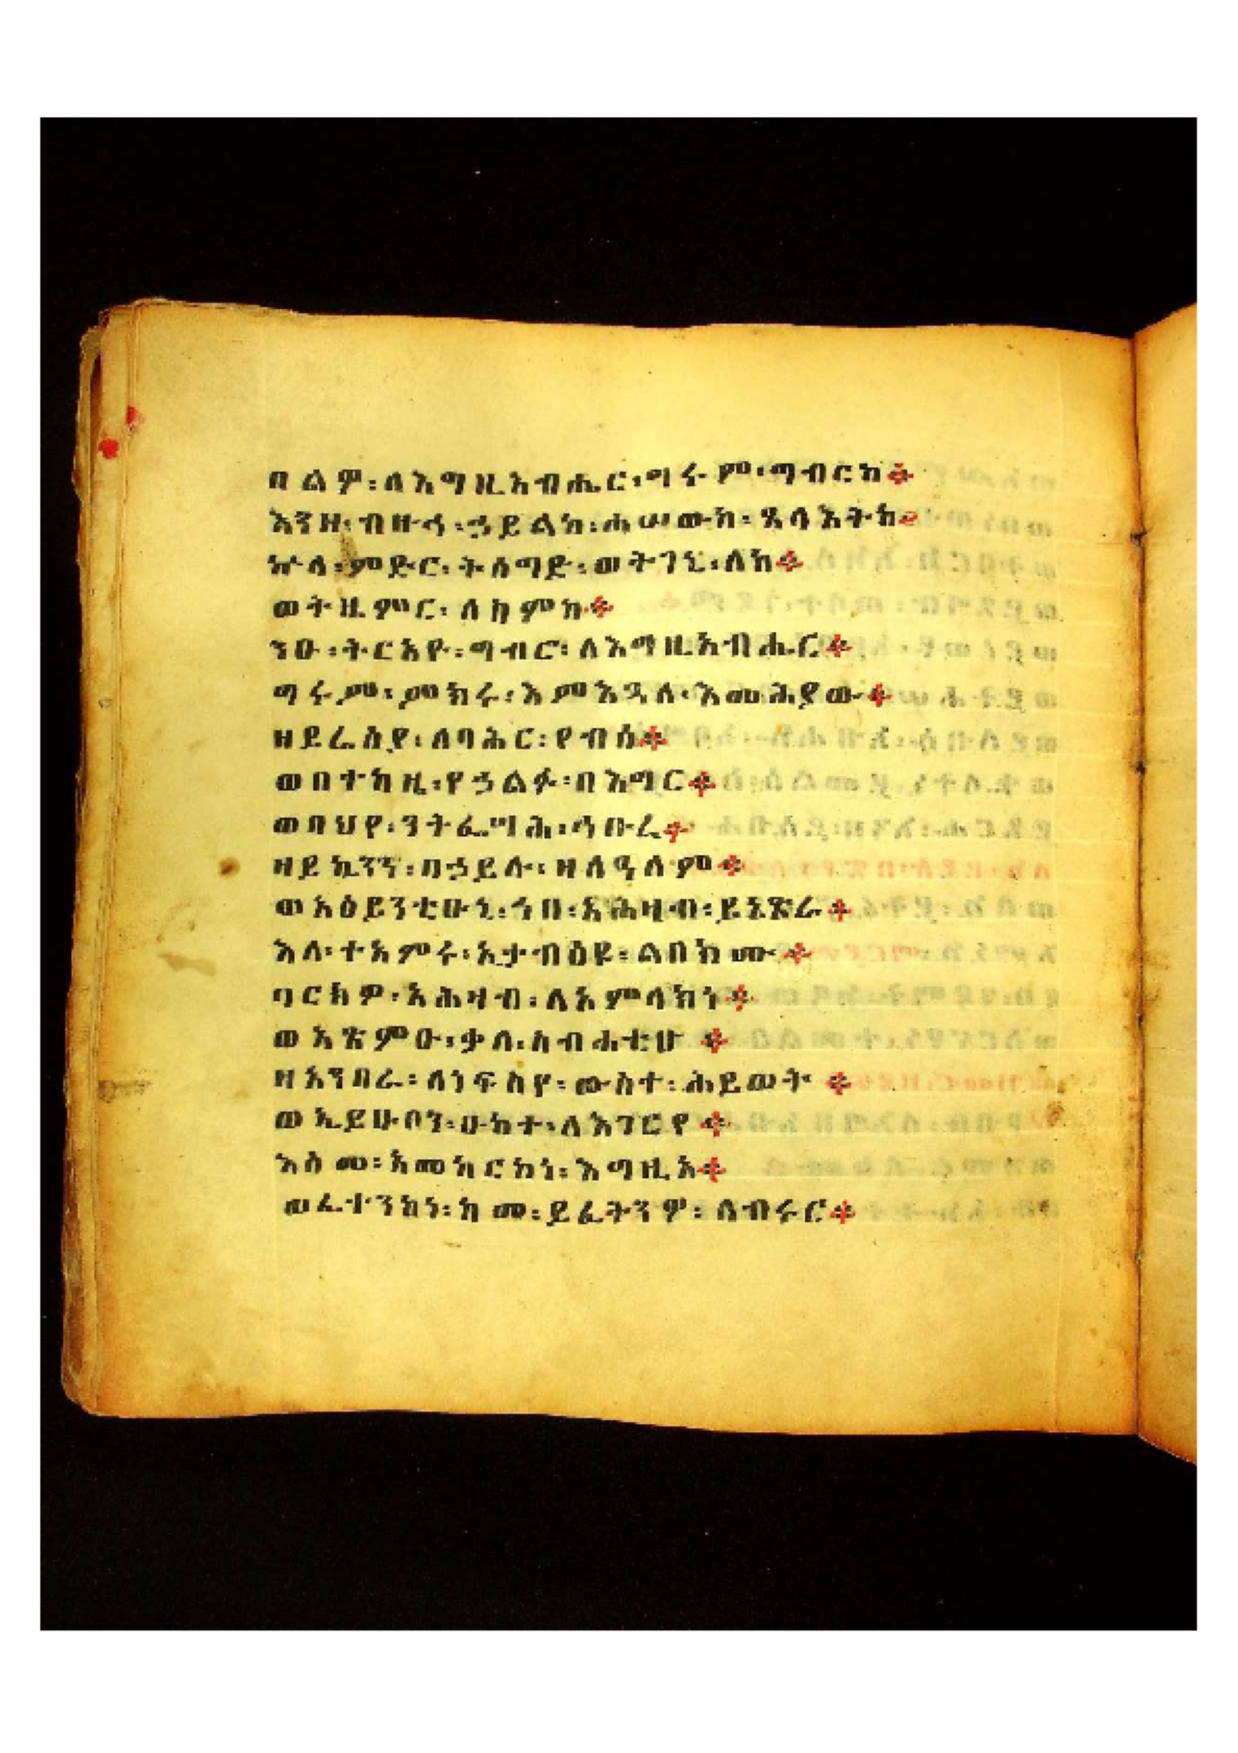 በልዎ፡ለእግዚአብሔር፡ግሩም፡ግብርከ፨
እንዘ፡ብዙኅ፡ኃይልከ፡ሐሠውከ፡ጸላእትከ፨
ኵላ፡ምድር፡ትሰግድ፡ወትገኒ፡ለከ፨
ወትዜምር፡ለስምከ፨
ንዑ፡ትርአዩ፡ግብሮ፡ለእግዚአብሔር፨
ግሩም፡ምክሩ፡እምእጓለ፡እመሕያው፨
ዘይሬስያ፡ለባሕር፡የብሰ፨
ወበተከዚ፡የኃልፉ፡በእግር፨
ወበህየ፡ንትፌሣሕ፡ኅቡረ፨
ዘይኴንን፡በኃይሉ፡ዘለዓለም፨
ወአዕይንቲሁኒ፡ኀበ፡አሕዛብ፡ይኔጽራ፨
እለ፡ተአምሩ፡ኢታብዕዩ፡ልበክሙ፨
ባርክዎ፡አሕዛብ፡ለአምላክነ፨
ወአጽምዑ፡ቃለ፡ስብሐቲሁ፨
ዘአንበራ፡ለነፍስየ፡ውስተ፡ሕይወት፨
ወኢይሁቦን፡ሁከተ፡ለእገርየ፨
እስመ፡አመከርከነ፡እግዚኦ፨
ወፈተንከነ፡ከመ፡ይፈትንዎ፡ለብሩር፨